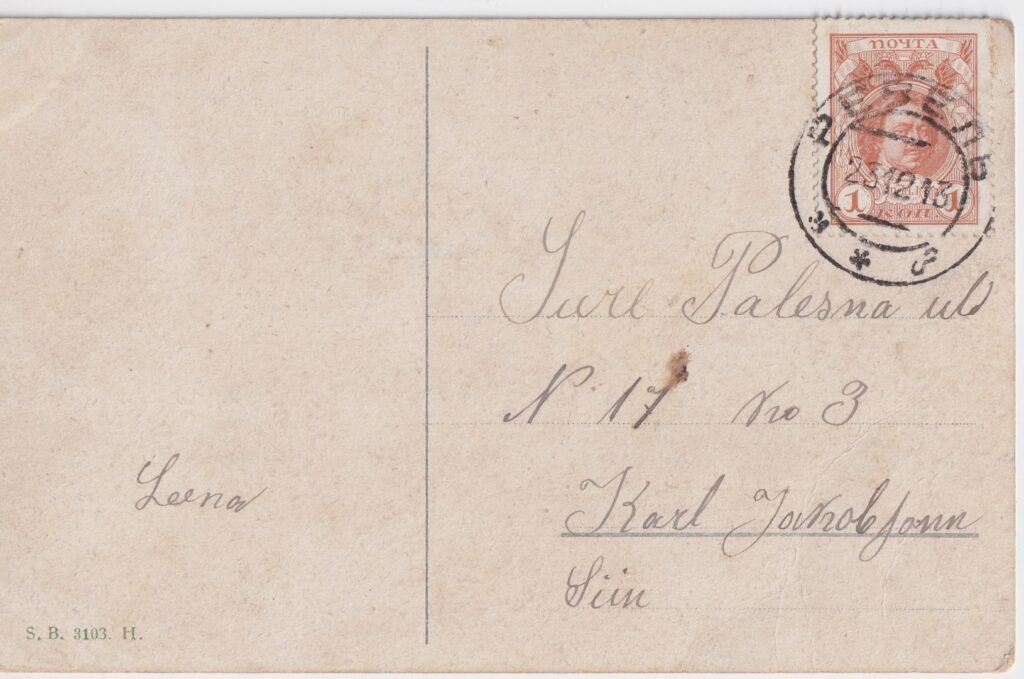 ПОЧТА
РЕВЕЛЬ
23 12 13
1 1
КОП.
Surl Palesna ul
N 17 kro 3
Karl Jakobsonn
Siin
Leena
S. B. 3103. H.